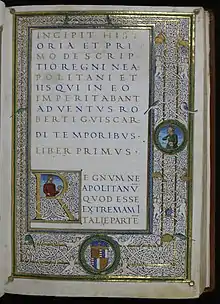 INCIPIT HIST
ORIA ET PRI
MO DESCRIP
TIO REGNI NEA
POLITANI ET
IIS QVI IN EO
IMPERITABANT
ADVENTVS RO
BERTI GVISCAR
DI TEMPORIBVS·
LIBER PRIMVS·
REGNVM NE
APOLITANV̄
QVOD ESSE
EXTREMAM I
TALIE PARTE